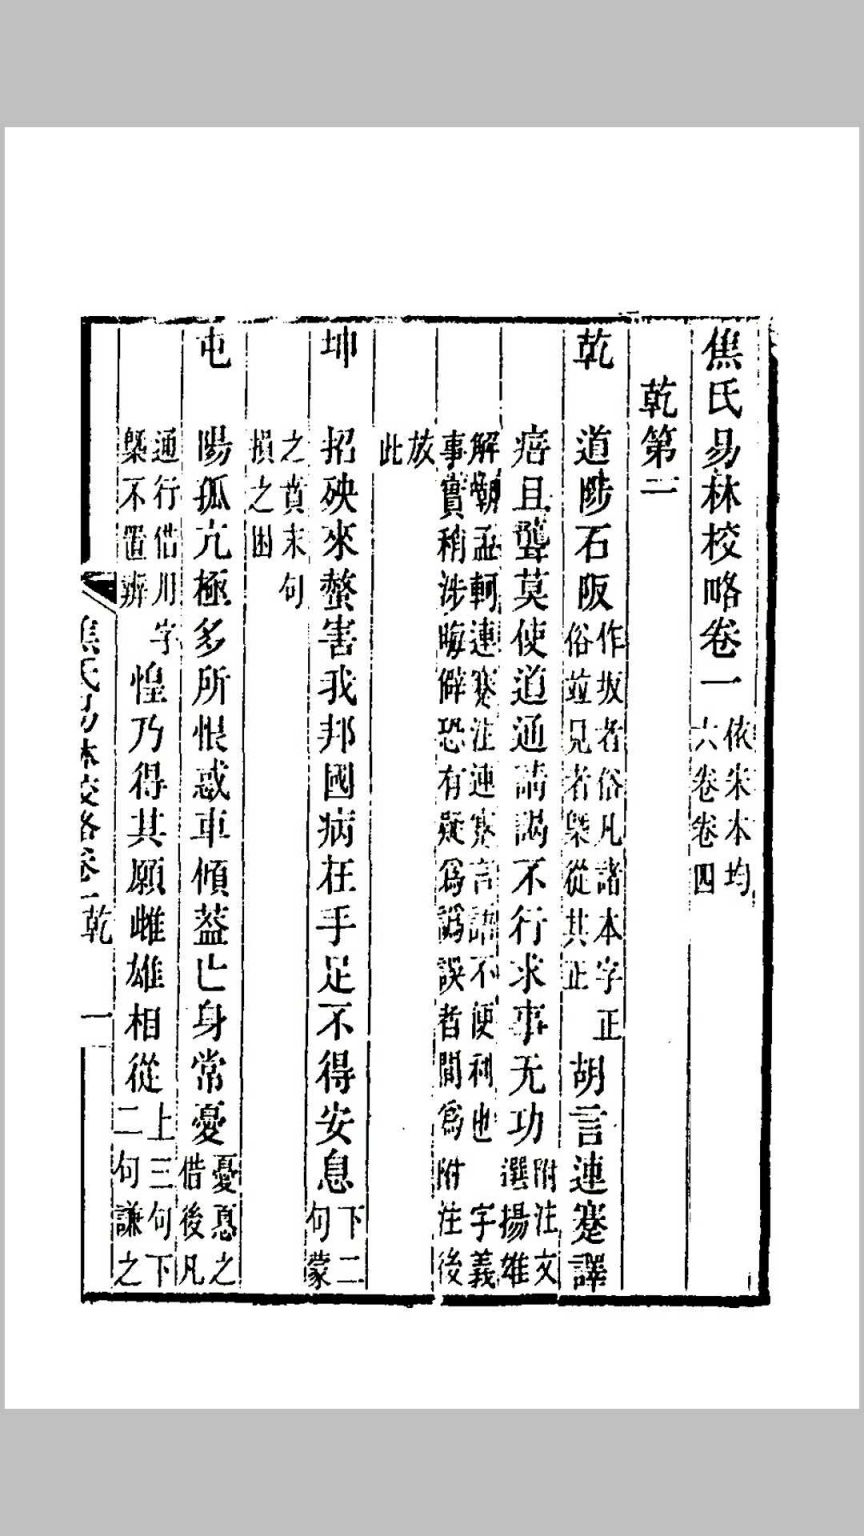 焦氏易林校略卷一 依宋本均六卷卷四
乾第一
乾 道陟石阪 作坂者俗凡諸本字正俗竝見者槩從其正 胡言連蹇譯
瘖且聾莫使道通請謁不行求事无功 附注文選揚雄
解嘲孟軻連蹇注連蹇言語不便利也 字義事實稍涉晦僻恐有疑爲譌誤者間爲附注後
放此
坤 招殃來螫害我邦國病在手足不得安息 下二句蒙
之賁末句損之困
屯 陽孤亢極多所恨惑車傾蓋亡身常憂 憂惪之借後凡
通行借用字槩不置辨 惶乃得其願雌雄相從 上三句下二句謙之
焦氏易林校略卷一 乾 一